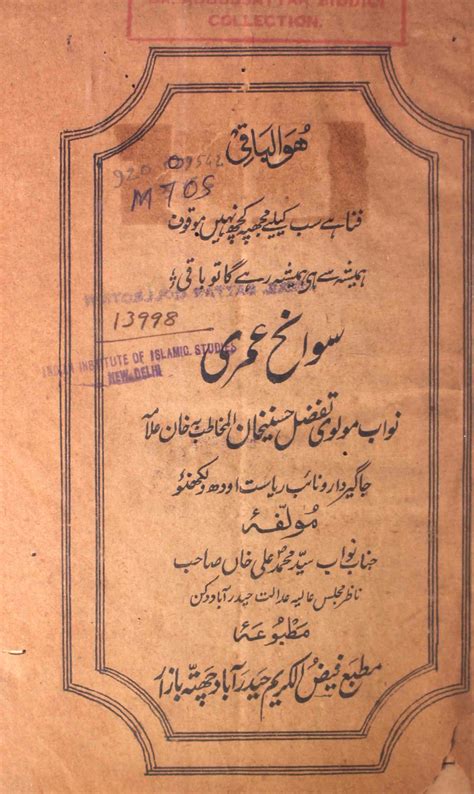 DR. ABDUSSATTAR SIDDIQI
COLLECTION.
ھُوَ الباقی
920
M705
فنا ہے سب کیلئے مجھپہ کچھ نہیں موقوف
ہمیشہ سے ہی ہمیشہ رہے گا تو باقی
13998
سوانح عمری
INDIAN INSTITUTE OF ISLAMIC STUDIES
NEW DELHI
نواب مولوی تفضل حسینخان المخاطب بہ خان علامہ
جاگیردار و نائب ریاست اودھ و لکھنؤ
مُولفہٗ
جناب نواب سیّد محمدؐ علی خاں صاحب
ناظر مجلس عالیہ عدالت حیدرآباد دکن
مطبُوعہٗ
مطبع فیضُ الکریم حیدرآباد چھتہ بازار